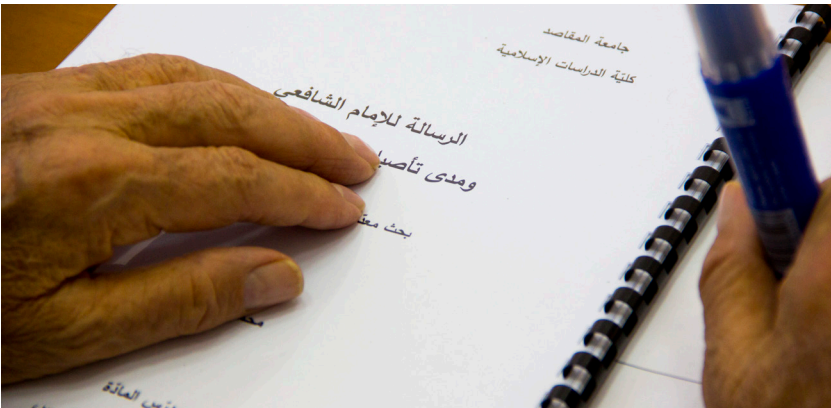 جامعة المقاصد
كليّة الدراسات الإسلامية
الرسالة للإمام الشافعي
ومدى
بحث
المادّة